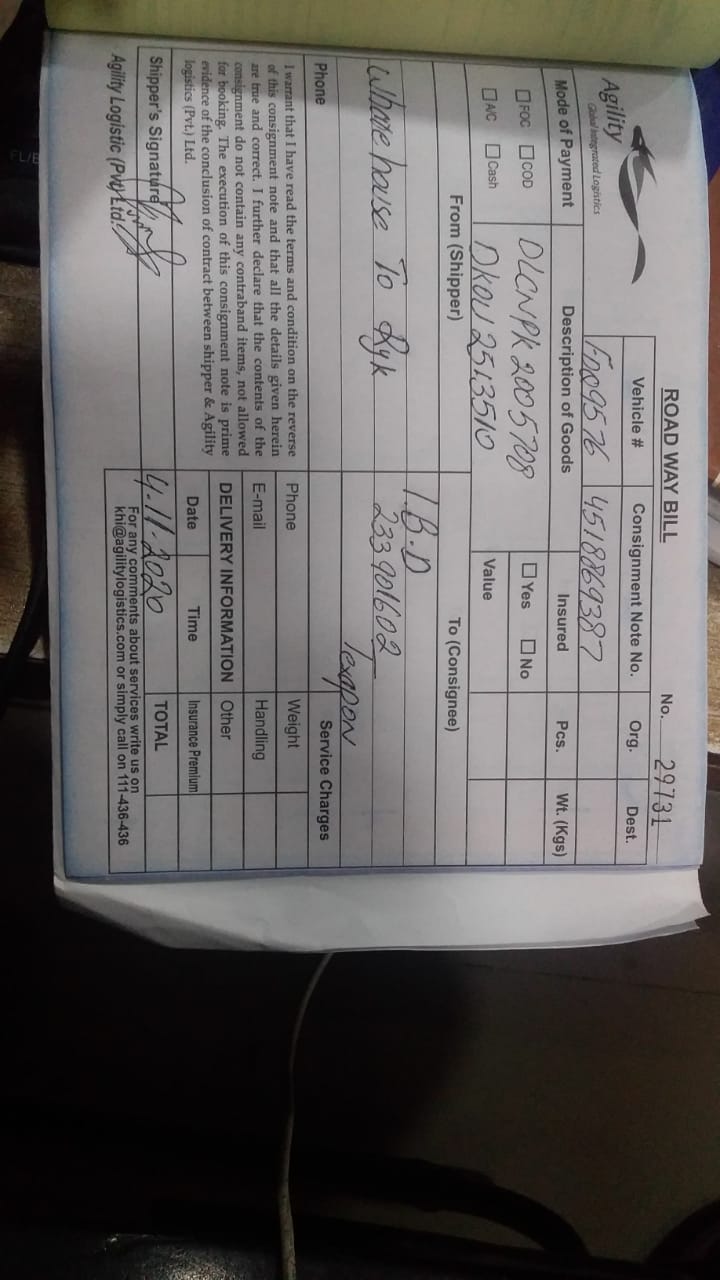 ROAD WAY BILL
No. 29731
Agility
Global Integrated Logistics
Vehicle # Consignment Note No. Org. Dest.
FDQ9576 4518869387
Mode of Payment Description of Goods Insured Pcs. Wt. (Kgs)
FOC COD DLCNPK2005708 Yes No
A/C Cash DKOU2513510 Value
From (Shipper) To (Consignee)
I.B.D
Wharehouse To Ryk 233901602
Texapon
Phone Service Charges
I warrant that I have read the terms and condition on the reverse
of this consignment note and that all the details given herein
are true and correct. I further declare that the contents of the
consignment do not contain any contraband items, not allowed
for booking. The execution of this consignment note is prime
evidence of the conclusion of contract between shipper & Agility
logistics (Pvt.) Ltd.
Phone Weight
E-mail Handling
DELIVERY INFORMATION Other
Date Time Insurance Premium
4.11.2020 TOTAL
Shipper's Signature
Agility Logistic (Pvt) Ltd.
For any comments about services write us on
khi@agilitylogistics.com or simply call on 111-436-436